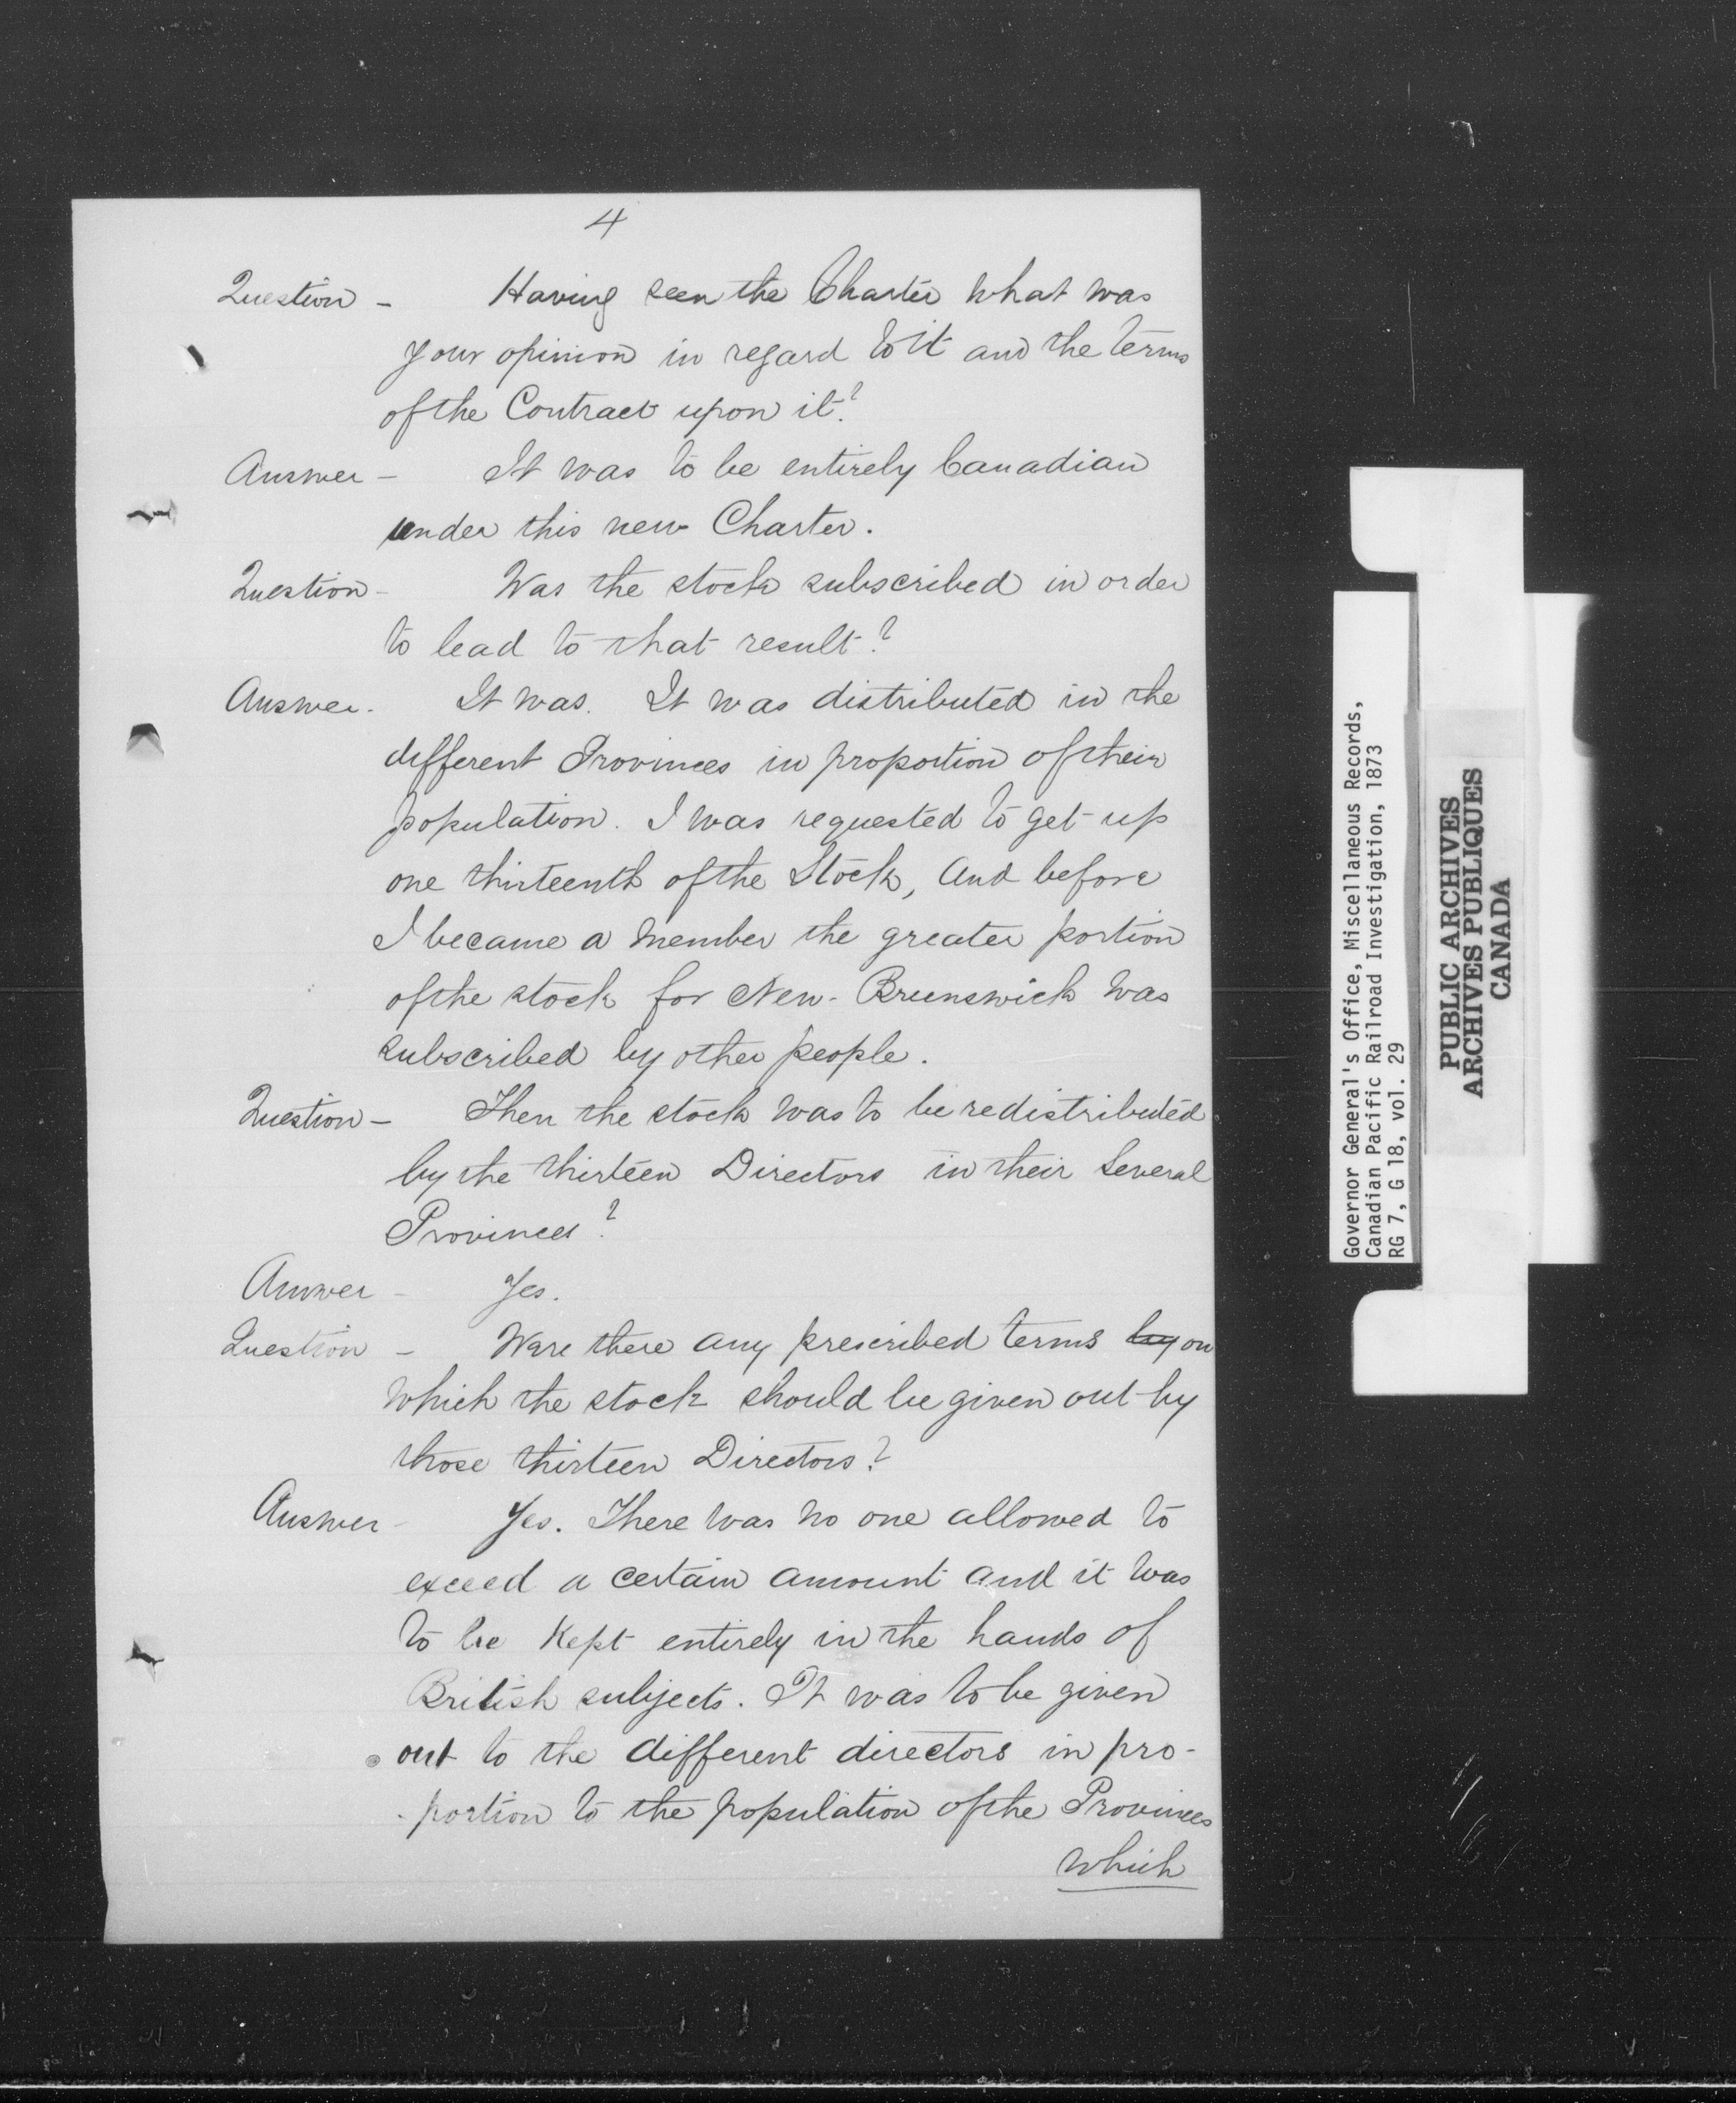 4
Question - Having seen the Charter what was
your opinion in regard to it and the terms
of the Contract upon it?
Answer - It was to be entirely Canadian
under this new Charter.
Question - Was the stock subscribed in order
to lead to that result?
Answer. It was. It was distributed in the
different Provinces in proportion of their
population. I was requested to get up
one thirteenth of the Stock, and before
I became a member the greater portion
of the stock for New-Brunswick was
subscribed by other people.
Question - Then the stock was to be redistributed
by the thirteen Directors in their several
Provinces?
Answer - Yes.
Question - Were there any prescribed terms by on
which the stock should be given out by
those thirteen Directors?
Answer - Yes. There was no one allowed to
exceed a certain amount and it was
to be kept entirely in the hands of
British subjects. It was to be given
out to the different directors in pro-
portion to the population of the Provinces
which
Governor General's Office, Miscellaneous Records,
Canadian Pacific Railroad Investigation, 1873
RG 7, G 18, vol. 29
PUBLIC ARCHIVES
ARCHIVES PUBLIQUES
CANADA